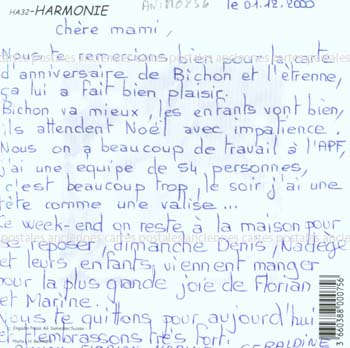 HA32-HARMONIE
le 01.12.2000
Chère mami,
Nous te remercions bien pour la carte
d'anniversaire de Bichon et l'étrenne,
ça lui a fait bien plaisir.
Bichon va mieux, les enfants vont bien,
ils attendent Noël avec impatience.
Nous on a beaucoup de travail à l'APF,
j'ai une equipe de 54 personnes,
c'est beaucoup trop, le soir j'ai une
tête comme une valise...
Ce week-end on reste à la maison pour
se reposer, dimanche Denis, Nadège
et leurs enfants viennent manger
pour la plus grande joie de Florian
et Marine.
Nous te quittons pour aujourd'hui
et embrassons très fort.
GERALDINE
3 660388 000756